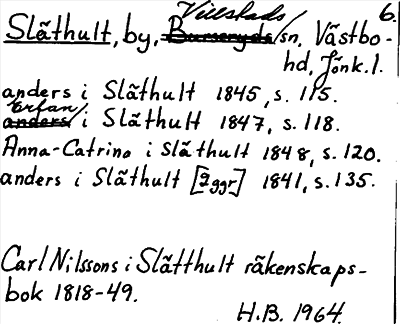 6.
Villstads
Släthult, by, Burseryds/sn, Västbo-
hd, Jönk.l.
anders i Släthult 1845, s. 115.
Erfan/
anders/ i Släthult 1847, s. 118.
Anna-Catrina i Släthult 1848, s. 120.
anders i Släthult [2 ggr] 1841, s. 135.
Carl Nilssons i Slätthult räkenskaps-
bok 1818-49.
H.B. 1964.